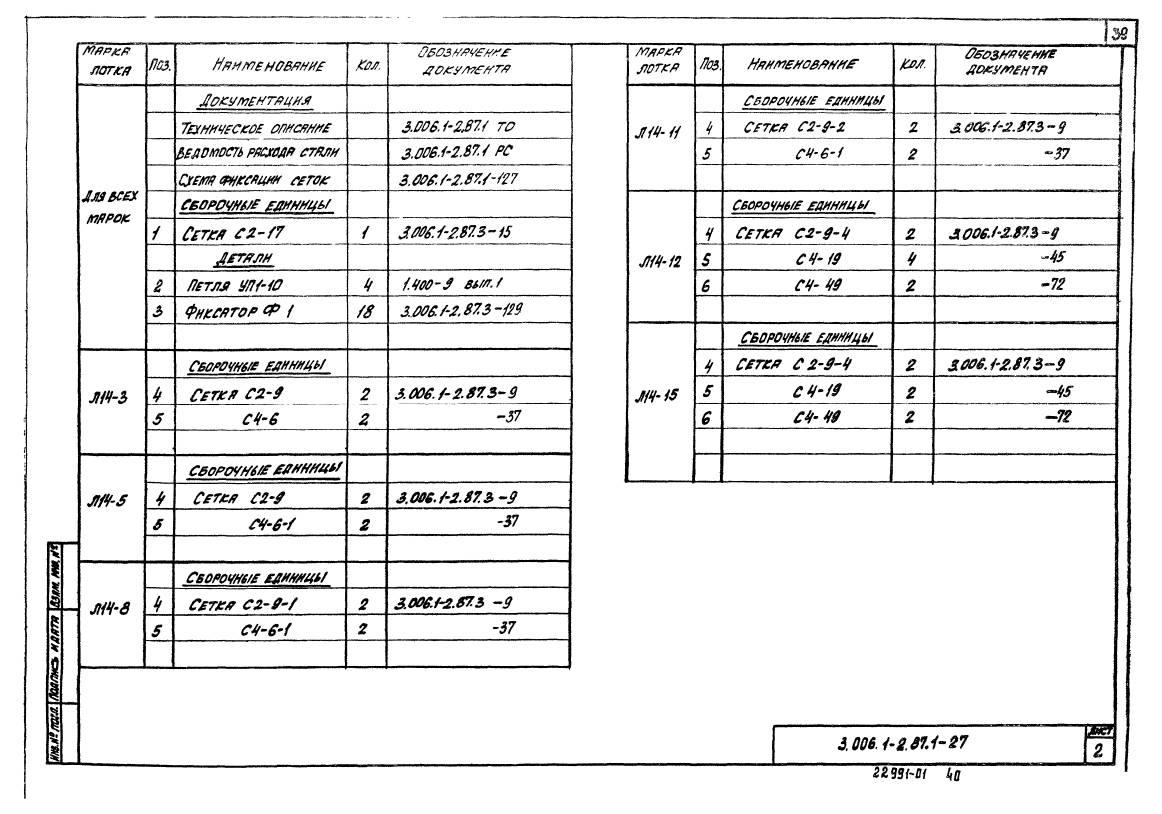 39
Марка лотка Поз. Наименование Кол. Обозначение документа
Для всех марок
Документация
Техническое описание 3.006.1-2.87.1 ТО
Ведомость расхода стали 3.006.1-2.87.1 РС
Схема фиксации сеток 3.006.1-2.87.1-127
Сборочные единицы
1 Сетка С2-17 1 3.006.1-2.87.3-15
Детали
2 Петля УП1-10 4 1.400-9 вып.1
3 Фиксатор Ф1 18 3.006.1-2.87.3-129
Л14-3
Сборочные единицы
4 Сетка С2-9 2 3.006.1-2.87.3-9
5 С4-6 2 -37
Л14-5
Сборочные единицы
4 Сетка С2-9 2 3.006.1-2.87.3-9
5 С4-6-1 2 -37
Л14-8
Сборочные единицы
4 Сетка С2-9-1 2 3.006.1-2.87.3-9
5 С4-6-1 2 -37
Марка лотка Поз. Наименование Кол. Обозначение документа
Л14-11
Сборочные единицы
4 Сетка С2-9-2 2 3.006.1-2.87.3-9
5 С4-6-1 2 -37
Л14-12
Сборочные единицы
4 Сетка С2-9-4 2 3.006.1-2.87.3-9
5 С4-19 4 -45
6 С4-49 2 -72
Л14-15
Сборочные единицы
4 Сетка С2-9-4 2 3.006.1-2.87.3-9
5 С4-19 2 -45
6 С4-49 2 -72
Инв.№ подл. Подпись и дата Взам. инв.№
3.006.1-2.87.1-27
Лист
2
22991-01 40